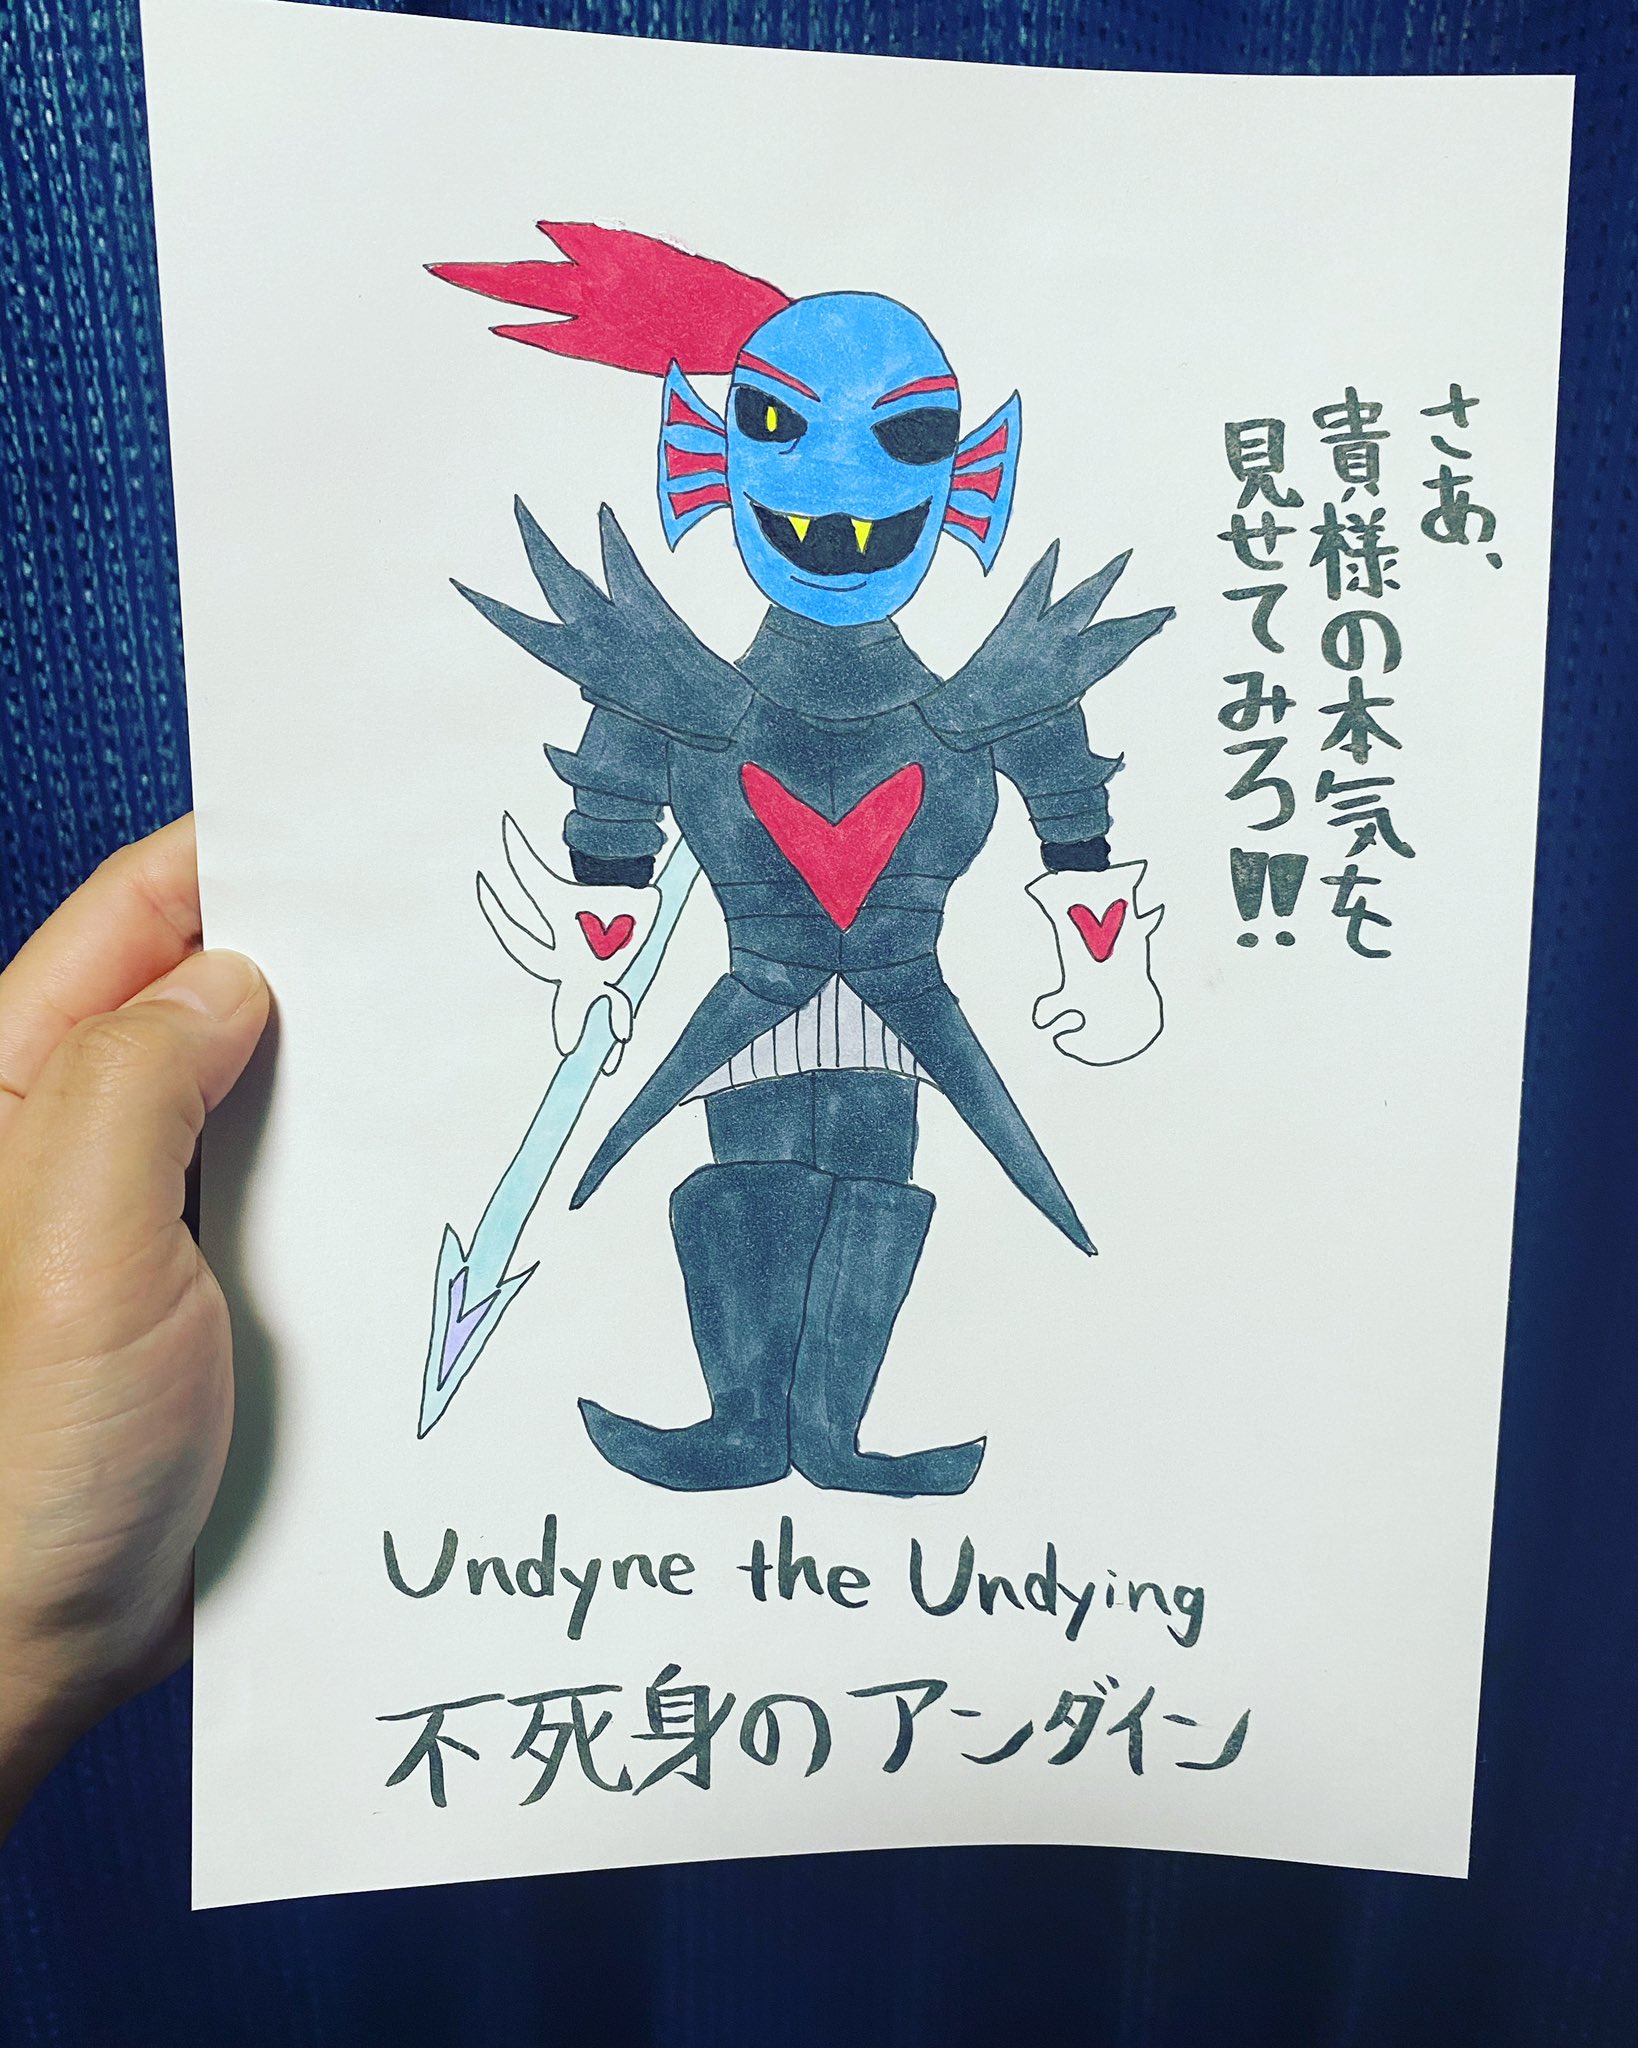 さあ、
貴様の本気を
見せてみろ!!
Undyne the Undying
不死身のアンダイン